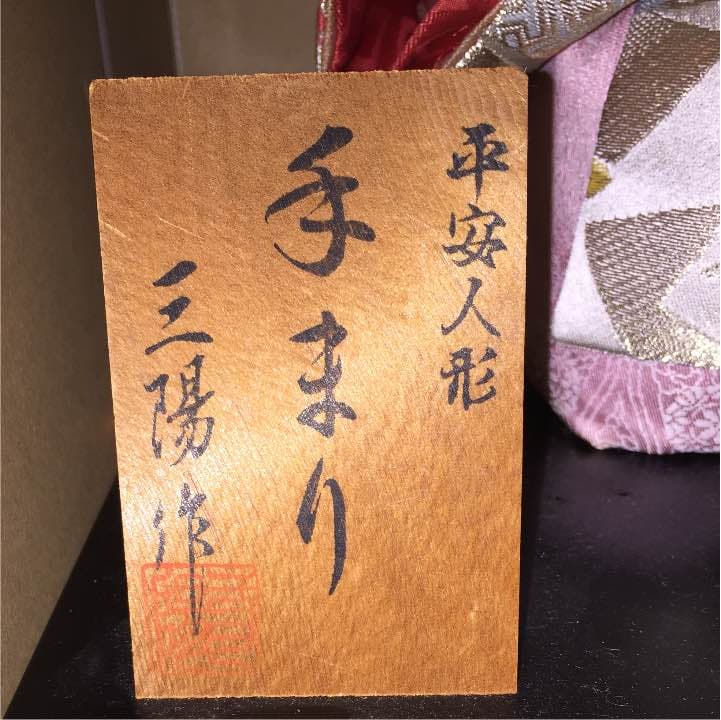 平安人形
手まり
三陽作